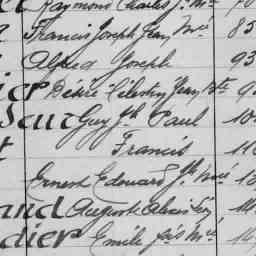 Raymond Charles J. M
Francis Joseph Jean, Mce 85
Alfred Joseph 93
ier Désiré Célestin Jean, Bte 9
Guy Jh Paul 10
Francis 11
Ernest Edouard Jh Mce 1
and Auguste Alexis 14
dier Emile Jes Mce 14